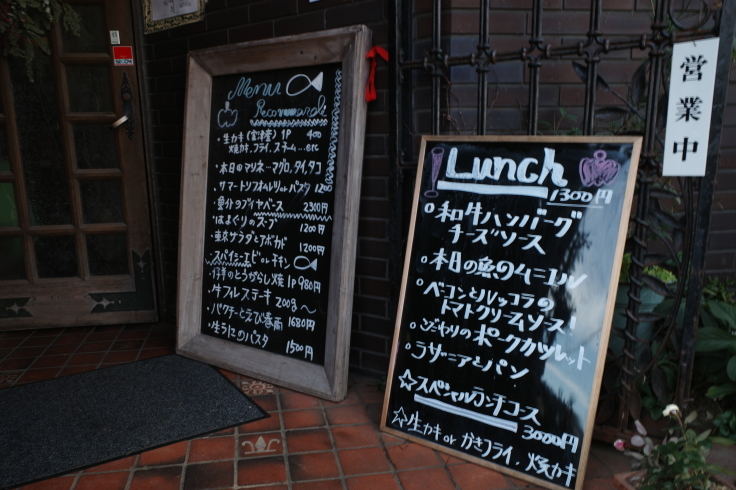 Menu
Recommends
・生カキ(宮津産) 1P 400
焼ガキ、フライ、スチーム...etc
・本日のマリネ…マグロ、タイ、タコ
・サーモントフオルツォルパスタ 1200
・自分のブイヤベース 2300円
・はまぐりのスープ 1200円
・東京サラダとアボカド 1200円
・スパイシーエビorチキン
・仔羊のとうがらし焼 1P 980円
・牛フィレステーキ 200g〜
・パクチーとえび春雨 1680円
・生うにのパスタ 1500円
Lunch
1300円
・和牛ハンバーグ
チーズソース
・本日の魚のムニエル
・ベーコンとルッコラの
トマトクリームソース!
・こだわりのポークカツレット
・ラザニアとパン
☆スペシャルランチコース
3000円
☆生カキorかきフライ、焼カキ
営業中